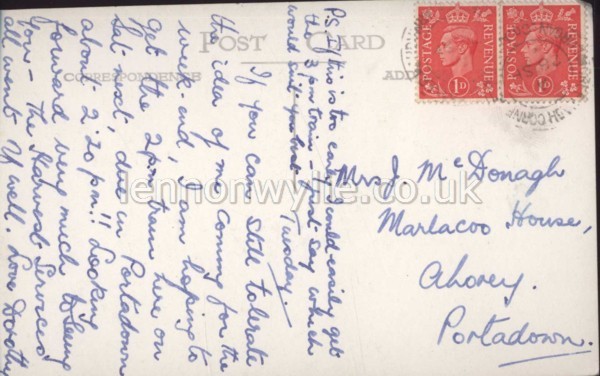 POST CARD
CORRESPONDENCE
ADD
POSTAGE REVENUE
1D
POSTAGE REVENUE
1D
P.S. If this is too early I could easily get
the 3 pm train - just say which
would suit you best. Tuesday.
If you can still tolerate
the idea of me coming for the
week-end, I am hoping to
get the 2 pm train here on
Sat. next, due in Portadown
about 2.20 pm!! Looking
forward very much to seeing
you - the Harvest Services
all went V well. Love Dorothy
Mrs J. McDonagh
Marlacoo House,
Ahorey.
Portadown.
lennonwylie.co.uk